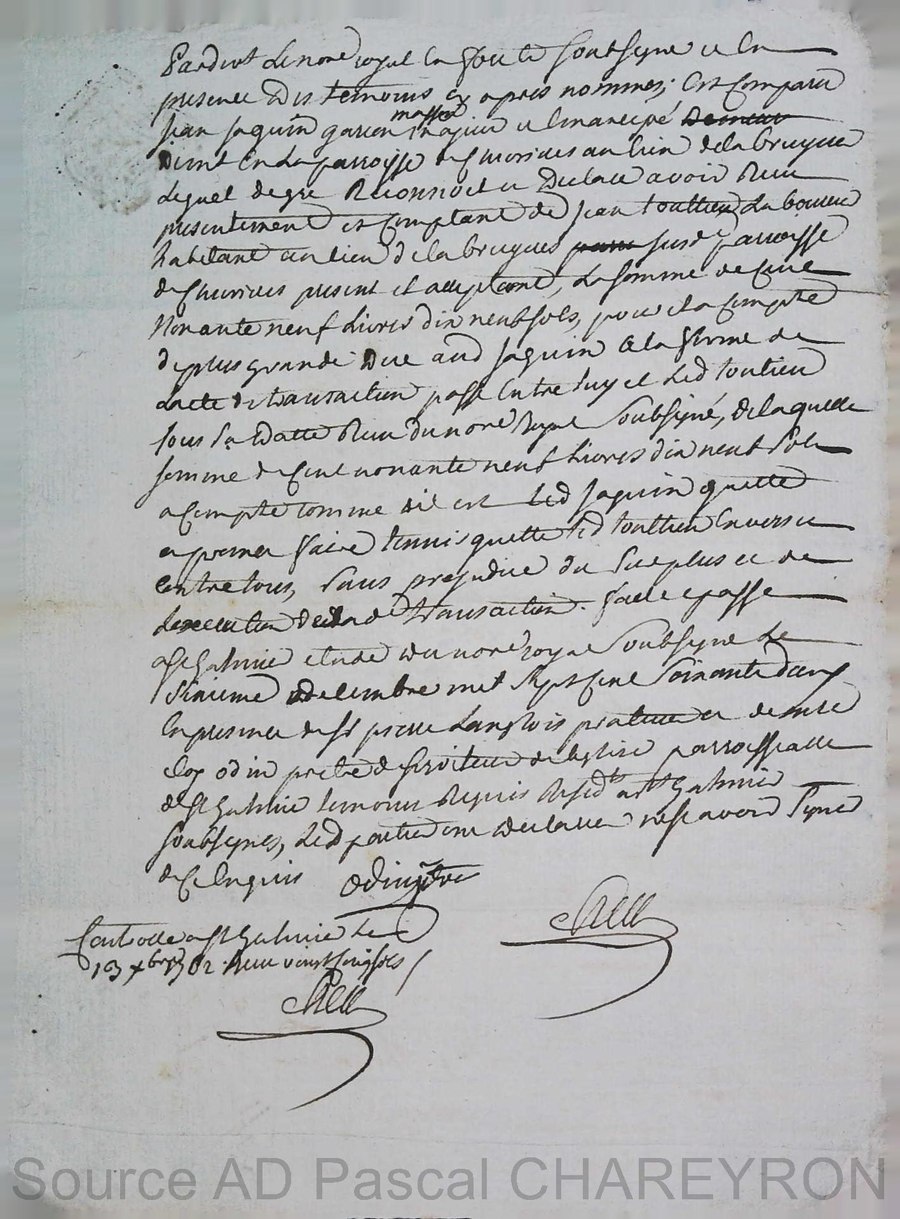 Pardevt le nore royal en forets soubsigne et en
presence des temoins cy apres nommes; est comparu
masson
jean jaquin garcon majeur et emancipé demeur
demt en la parroisse de chevrieres au lieu de la bruyere
lequel de gre Reconnoit et Declare avoir Recu
presentement et comptant de jean touttieu laboureur
habitant au lieu de la bruyeres parr susde parroisse
de chevrieres present et acceptant, la somme de Cent
Nonante neuf Livres dix neuf sols, pour et a compte
de plus grande Due aud jaquin a la forme de
Lacte de transaction passé Entre luy et led touttieu
sous sa Datte Recu du nore Royal soubsigné, de laquelle
somme de Cent nonante neuf Livres dix neuf sols
a Compte comme dit est led jaquin quitte
et promet faire tenir quitte led touttieu Envers et
contre tous, sans prejudice du surplus et de
Lexecution de lad transaction. fait et passe
a St Galmier etude du nore royal soubsigne Le
Sixieme decembre mil Sept Cent soixante deux
En presence de Sr pierre Langlois praticien et de mre
eloy odin pretre et serviteur de leglise parroissialle
de St Galmier temoins Requis Residts a St Galmier
soubsignes, Led parties ont Declarer ne scavoir signer
de ce Enquis odin ptre
Controlle a St Galmier Le
13 xbre 1762 Recu vingt six sols
Source AD Pascal CHAREYRON